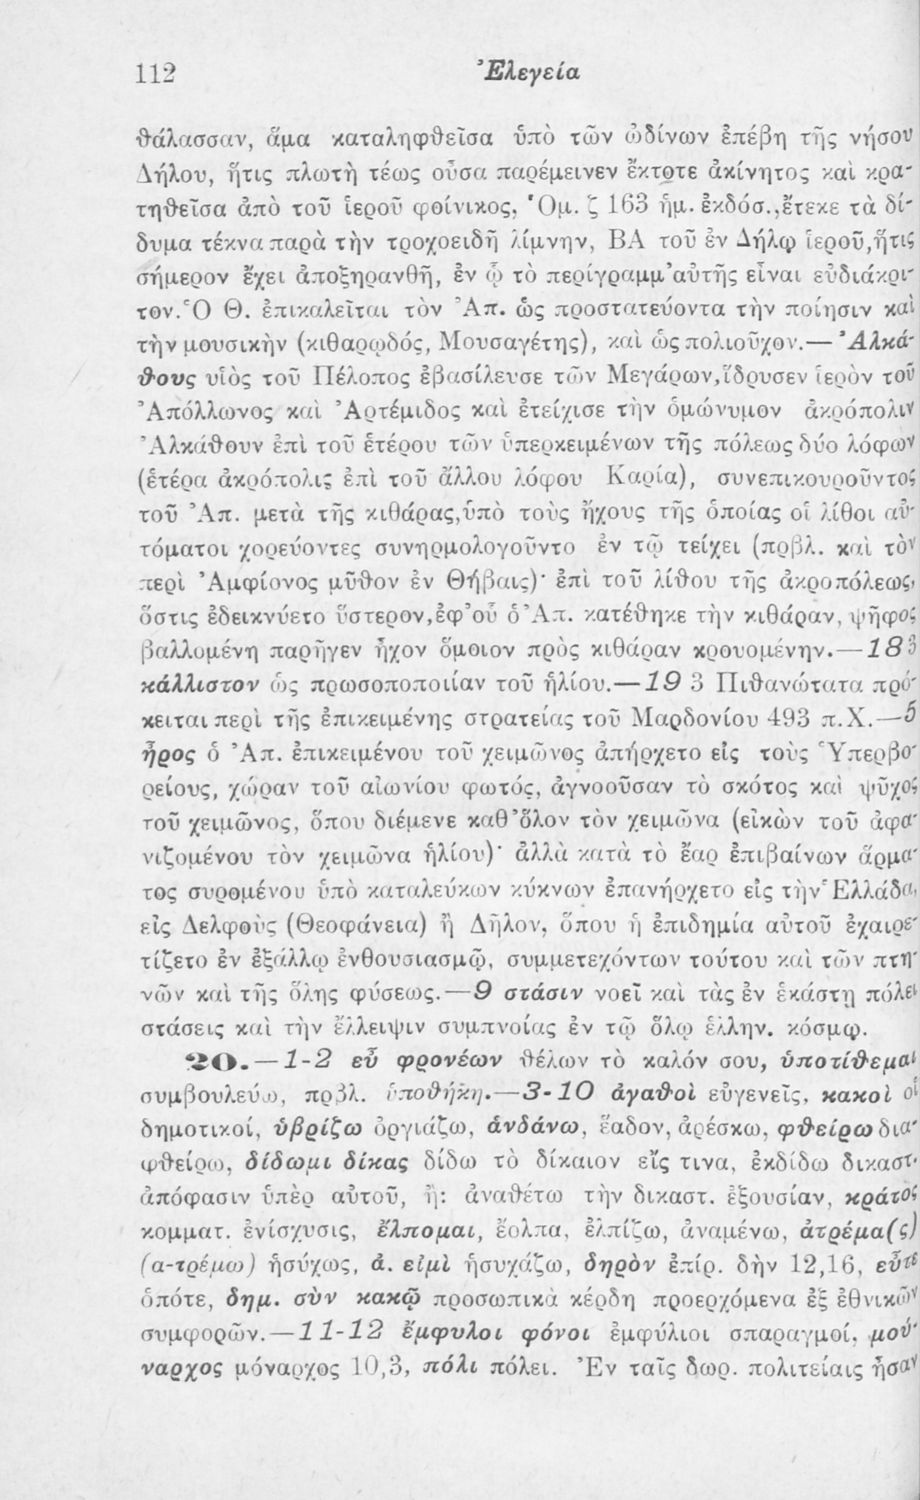 112
Ἐλεγεία
θάλασσαν, ἅμα καταληφθεῖσα ὑπὸ τῶν ὠδίνων ἐπέβη τῆς νήσου
Δήλου, ἥτις πλωτὴ τέως οὖσα παρέμεινεν ἔκτοτε ἀκίνητος καὶ κρα-
τηθεῖσα ἀπὸ τοῦ ἱεροῦ φοίνικος, Ὁμ. ζ 163 ἡμ. ἐκδόσ.,ἔτεκε τὰ δί-
δυμα τέκνα παρὰ τὴν τροχοειδῆ λίμνην, ΒΑ τοῦ ἐν Δήλῳ ἱεροῦ,ἥτις
σήμερον ἔχει ἀποξηρανθῆ, ἐν ᾧ τὸ περίγραμμ'αὐτῆς εἶναι εὐδιάκρι-
τον. Ὁ Θ. ἐπικαλεῖται τὸν Ἀπ. ὡς προστατεύοντα τὴν ποίησιν καὶ
τὴν μουσικὴν (κιθαρῳδός, Μουσαγέτης), καὶ ὡς πολιοῦχον.— Ἀλκά-
θους υἱὸς τοῦ Πέλοπος ἐβασίλευσε τῶν Μεγάρων,ἵδρυσεν ἱερὸν τοῦ
Ἀπόλλωνος καὶ Ἀρτέμιδος καὶ ἐτείχισε τὴν ὁμώνυμον ἀκρόπολιν
Ἀλκάθουν ἐπὶ τοῦ ἑτέρου τῶν ὑπερκειμένων τῆς πόλεως δύο λόφων
(ἑτέρα ἀκρόπολις ἐπὶ τοῦ ἄλλου λόφου Καρία), συνεπικουροῦντος
τοῦ Ἀπ. μετὰ τῆς κιθάρας,ὑπὸ τοὺς ἤχους τῆς ὁποίας οἱ λίθοι αὐ-
τόματοι χορεύοντες συνηρμολογοῦντο ἐν τῷ τείχει (πρβλ. καὶ τὸν
περὶ Ἀμφίονος μῦθον ἐν Θήβαις)· ἐπὶ τοῦ λίθου τῆς ἀκροπόλεως,
ὅστις ἐδεικνύετο ὕστερον,ἐφ'οὗ ὁ Ἀπ. κατέθηκε τὴν κιθάραν, ψῆφος
βαλλομένη παρῆγεν ἦχον ὅμοιον πρὸς κιθάραν κρουομένην.—18 3
κάλλιστον ὡς πρωσοποποιίαν τοῦ ἡλίου.—19 3 Πιθανώτατα πρό-
κειται περὶ τῆς ἐπικειμένης στρατείας τοῦ Μαρδονίου 493 π.Χ.—5
ἦρος ὁ Ἀπ. ἐπικειμένου τοῦ χειμῶνος ἀπήρχετο εἰς τοὺς Ὑπερβο-
ρείους, χώραν τοῦ αἰωνίου φωτός, ἀγνοοῦσαν τὸ σκότος καὶ ψῦχος
τοῦ χειμῶνος, ὅπου διέμενε καθ'ὅλον τὸν χειμῶνα (εἰκὼν τοῦ ἀφα-
νιζομένου τὸν χειμῶνα ἡλίου)· ἀλλὰ κατὰ τὸ ἔαρ ἐπιβαίνων ἅρμα-
τος συρομένου ὑπὸ καταλεύκων κύκνων ἐπανήρχετο εἰς τὴν Ἑλλάδα,
εἰς Δελφοὺς (Θεοφάνεια) ἢ Δῆλον, ὅπου ἡ ἐπιδημία αὐτοῦ ἐχαιρε-
τίζετο ἐν ἐξάλλῳ ἐνθουσιασμῷ, συμμετεχόντων τούτου καὶ τῶν πτη-
νῶν καὶ τῆς ὅλης φύσεως.—9 στάσιν νοεῖ καὶ τὰς ἐν ἑκάστῃ πόλει
στάσεις καὶ τὴν ἔλλειψιν συμπνοίας ἐν τῷ ὅλῳ ἑλλην. κόσμῳ.
20.—1-2 εὖ φρονέων θέλων τὸ καλόν σου, ὑποτίθεμαι
συμβουλεύω, πρβλ. ὑποθήκη.—3-10 ἀγαθοὶ εὐγενεῖς, κακοὶ οἱ
δημοτικοί, ὑβρίζω ὀργιάζω, ἁνδάνω, ἕαδον, ἀρέσκω, φθείρω δια-
φθείρω, δίδωμι δίκας δίδω τὸ δίκαιον εἴς τινα, ἐκδίδω δικαστ.
ἀπόφασιν ὑπὲρ αὐτοῦ, ἢ: ἀναθέτω τὴν δικαστ. ἐξουσίαν, κράτος
κομματ. ἐνίσχυσις, ἔλπομαι, ἔολπα, ἐλπίζω, ἀναμένω, ἀτρέμα(ς)
(α-τρέμω) ἡσύχως, ἀ. εἰμὶ ἡσυχάζω, δηρὸν ἐπίρ. δὴν 12,16, εὖτε
ὁπότε, δημ. σὺν κακῷ προσωπικὰ κέρδη προερχόμενα ἐξ ἐθνικῶν
συμφορῶν.—11-12 ἔμφυλοι φόνοι ἐμφύλιοι σπαραγμοί, μού-
ναρχος μόναρχος 10,3, πόλι πόλει. Ἐν ταῖς δωρ. πολιτείαις ἦσαν